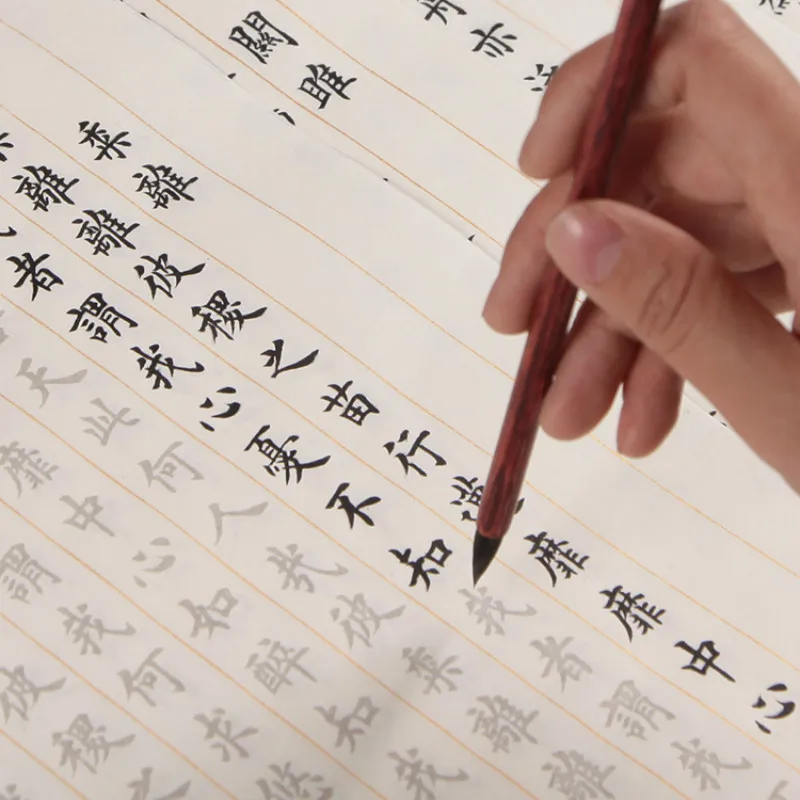 舟亦
關雎
黍離
離離彼稷之苗行邁靡靡中心
者謂我心憂不知我者謂我
天此何人哉彼黍離離
靡中心如醉知我
謂我何求悠
彼稷之